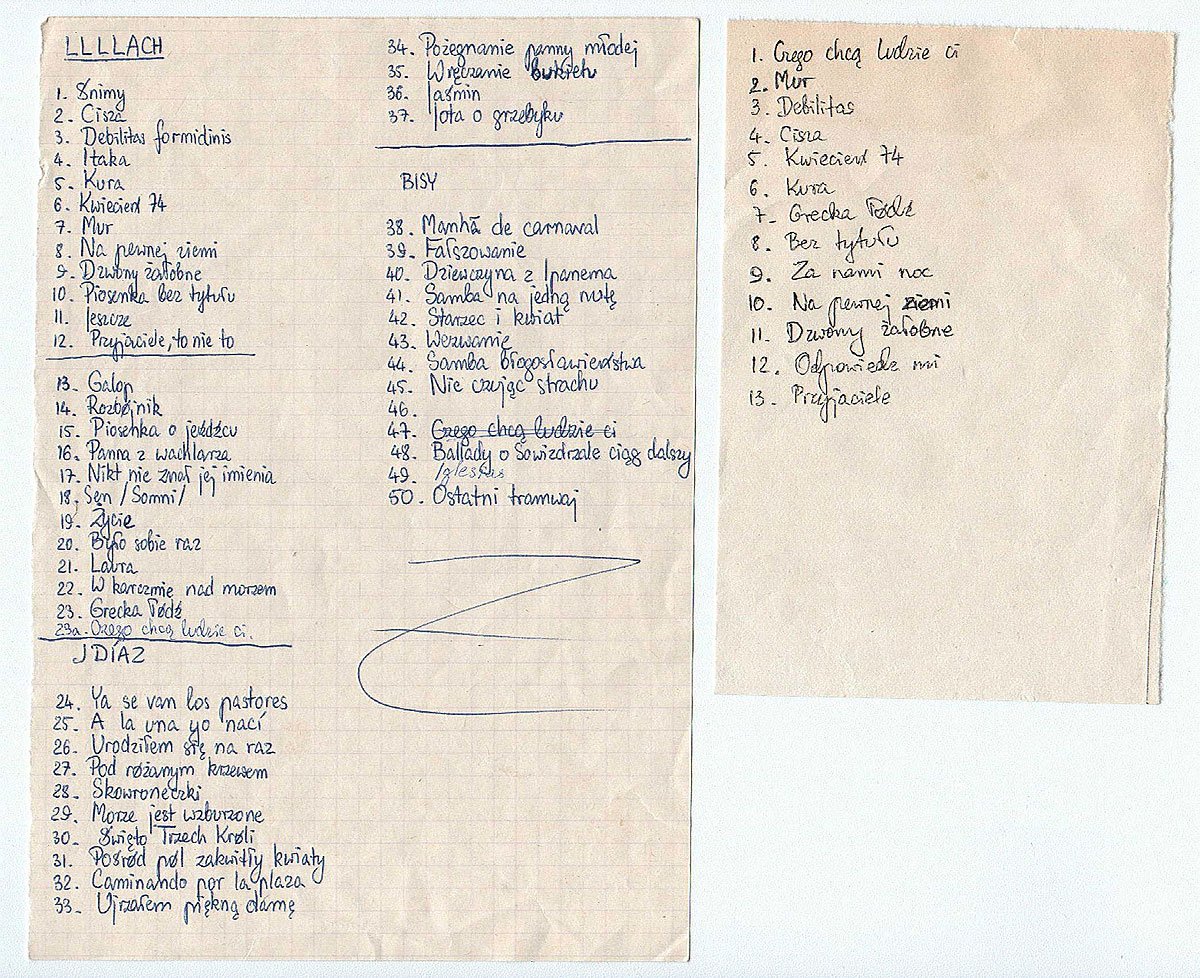 LLLLACH
1. Śnimy
2. Cisza
3. Debilitas formidinis
4. Itaka
5. Kura
6. Kwiecień 74
7. Mur
8. Na pewnej ziemi
9. Dzwony żałobne
10. Piosenka bez tytułu
11. Jeszcze
12. Przyjaciele, to nie to
13. Galop
14. Rozbójnik
15. Piosenka o jeźdźcu
16. Panna z wachlarza
17. Nikt nie znał jej imienia
18. Sen /Somni/
19. Życie
20. Było sobie raz
21. Laura
22. W karczmie nad morzem
23. Grecka łódź
23a. Czego chcą ludzie ci.
J DÍAZ
24. Ya se van los pastores
25. A la una yo nací
26. Urodziłem się na raz
27. Pod różanym krzewem
28. Skowroneczki
29. Morze jest wzburzone
30. Święto Trzech Króli
31. Pośród pól zakwitły kwiaty
32. Caminando por la plaza
33. Ujrzałem piękną damę
34. Pożegnanie panny młodej
35. Wręczanie bukietu
36. Jaśmin
37. Jota o grzebyku
BISY
38. Manhã de carnaval
39. Fałszowanie
40. Dziewczyna z Ipanema
41. Samba na jedną nutę
42. Starzec i kwiat
43. Wezwanie
44. Samba błogosławieństwa
45. Nie czując strachu
46.
47. Czego chcą ludzie ci
48. Ballady o Sowizdrzale ciąg dalszy
49. Iglesias
50. Ostatni tramwaj
1. Czego chcą ludzie ci
2. Mur
3. Debilitas
4. Cisza
5. Kwiecień 74
6. Kura
7. Grecka łódź
8. Bez tytułu
9. Za nami noc
10. Na pewnej ziemi
11. Dzwony żałobne
12. Odpowiedz mi
13. Przyjaciele